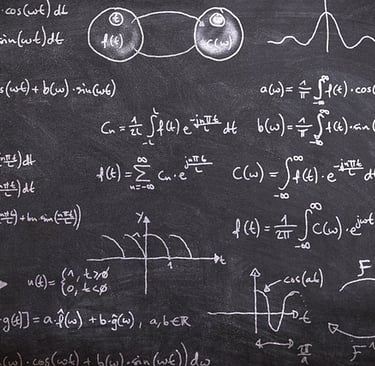 ·cos(ωt) dt
sin(ωt) dt
t
f(t)
ω
C(ω)
s(ωt) + b(ω)·sin(ωt)
a(ω) = 1/π ∫_{-∞}^{∞} f(t)·cos(
C_n = 1/2L ∫_{-L}^{L} f(t) e^{-jnπt/L} dt
b(ω) = 1/π ∫_{-∞}^{∞} f(t)·sin(
nπt/L) dt
nπt/L) dt
f(t) = ∑_{n=-∞}^{∞} C_n · e^{jnπt/L}
C(ω) = ∫_{-∞}^{∞} f(t) · e^{-jnπt/L} d
nπt/L) + b_n sin(nπt/L))
f(t) = 1/2π ∫_{-∞}^{∞} C(ω)·e^{jωt}
y
t
1
u(t) = {1, t≥0
{0, t<0
cos(at)
t
π/a
F
F
g(t)] = a·f̂(ω) + b·ĝ(ω), a,b∈ℝ
(ω)·cos(ωt) + b(ω)·sin(ωt)) dω